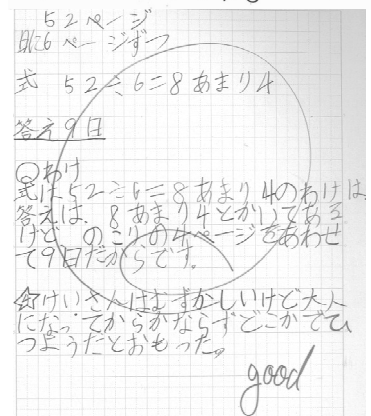 52ページ
1日に6ページずつ
式 52÷6=8あまり4
答え9日
○わけ
式は52÷6=8あまり4のわけは、
答えは、8あまり4とかいてある
けど のこりの4ページをあわせ
て9日だからです。
☆けいさんはむずかしいけど大人
になってからかならずどこかでひ
つようだとおもった。
good